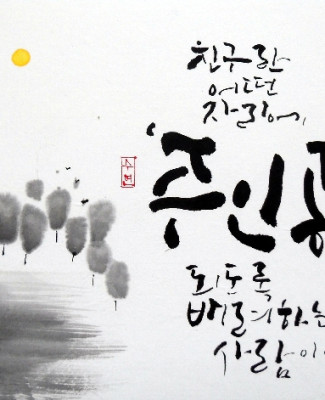 친구란
어떤
자리에
주인공
되도록
배려하는
사람이